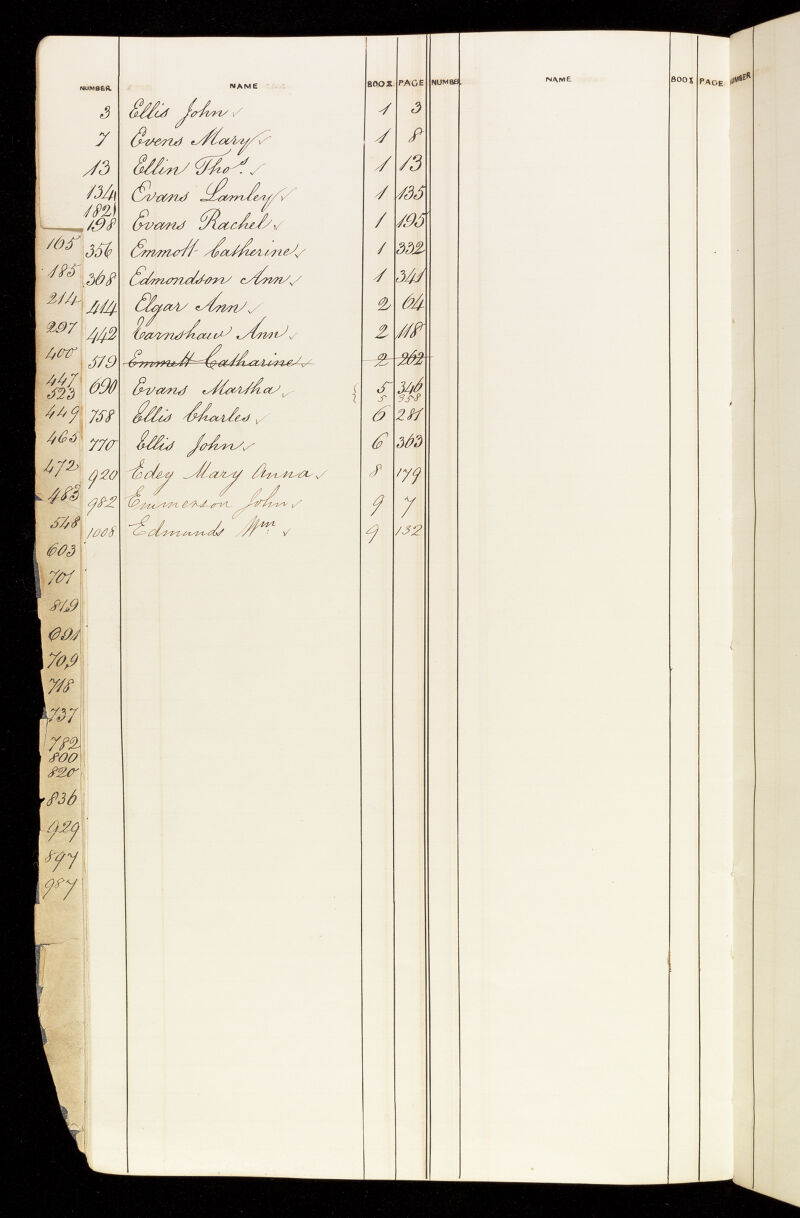 NUMBER NAME BOOK PAGE NUMBER NAME BOOK PAGE NUMBER
3 Ellis John 1 3
7 Evens Mary 1 8
13 Ellin Thos. 1 13
134 Evans Lamley 1 135
182
198 Evans Rachel 1 195
356 Emmott Catherine 1 332
368 Edmondson Ann 1 341
414 Elgar Ann 2 64
442 Earnshaw Ann 2 118
519 Emmett Catharine 2 262
690 Evans Martha 5 346
5 358
758 Ellis Charles 6 281
770 Ellis John 6 363
920 Edey Mary Anna 8 179
982 Emmerson John 9 7
1008 Edmunds Wm 9 132
165
185
214
297
400
447
523
449
465
472
483
548
603
701
819
691
709
718
737
782
800
820
836
929
897
987